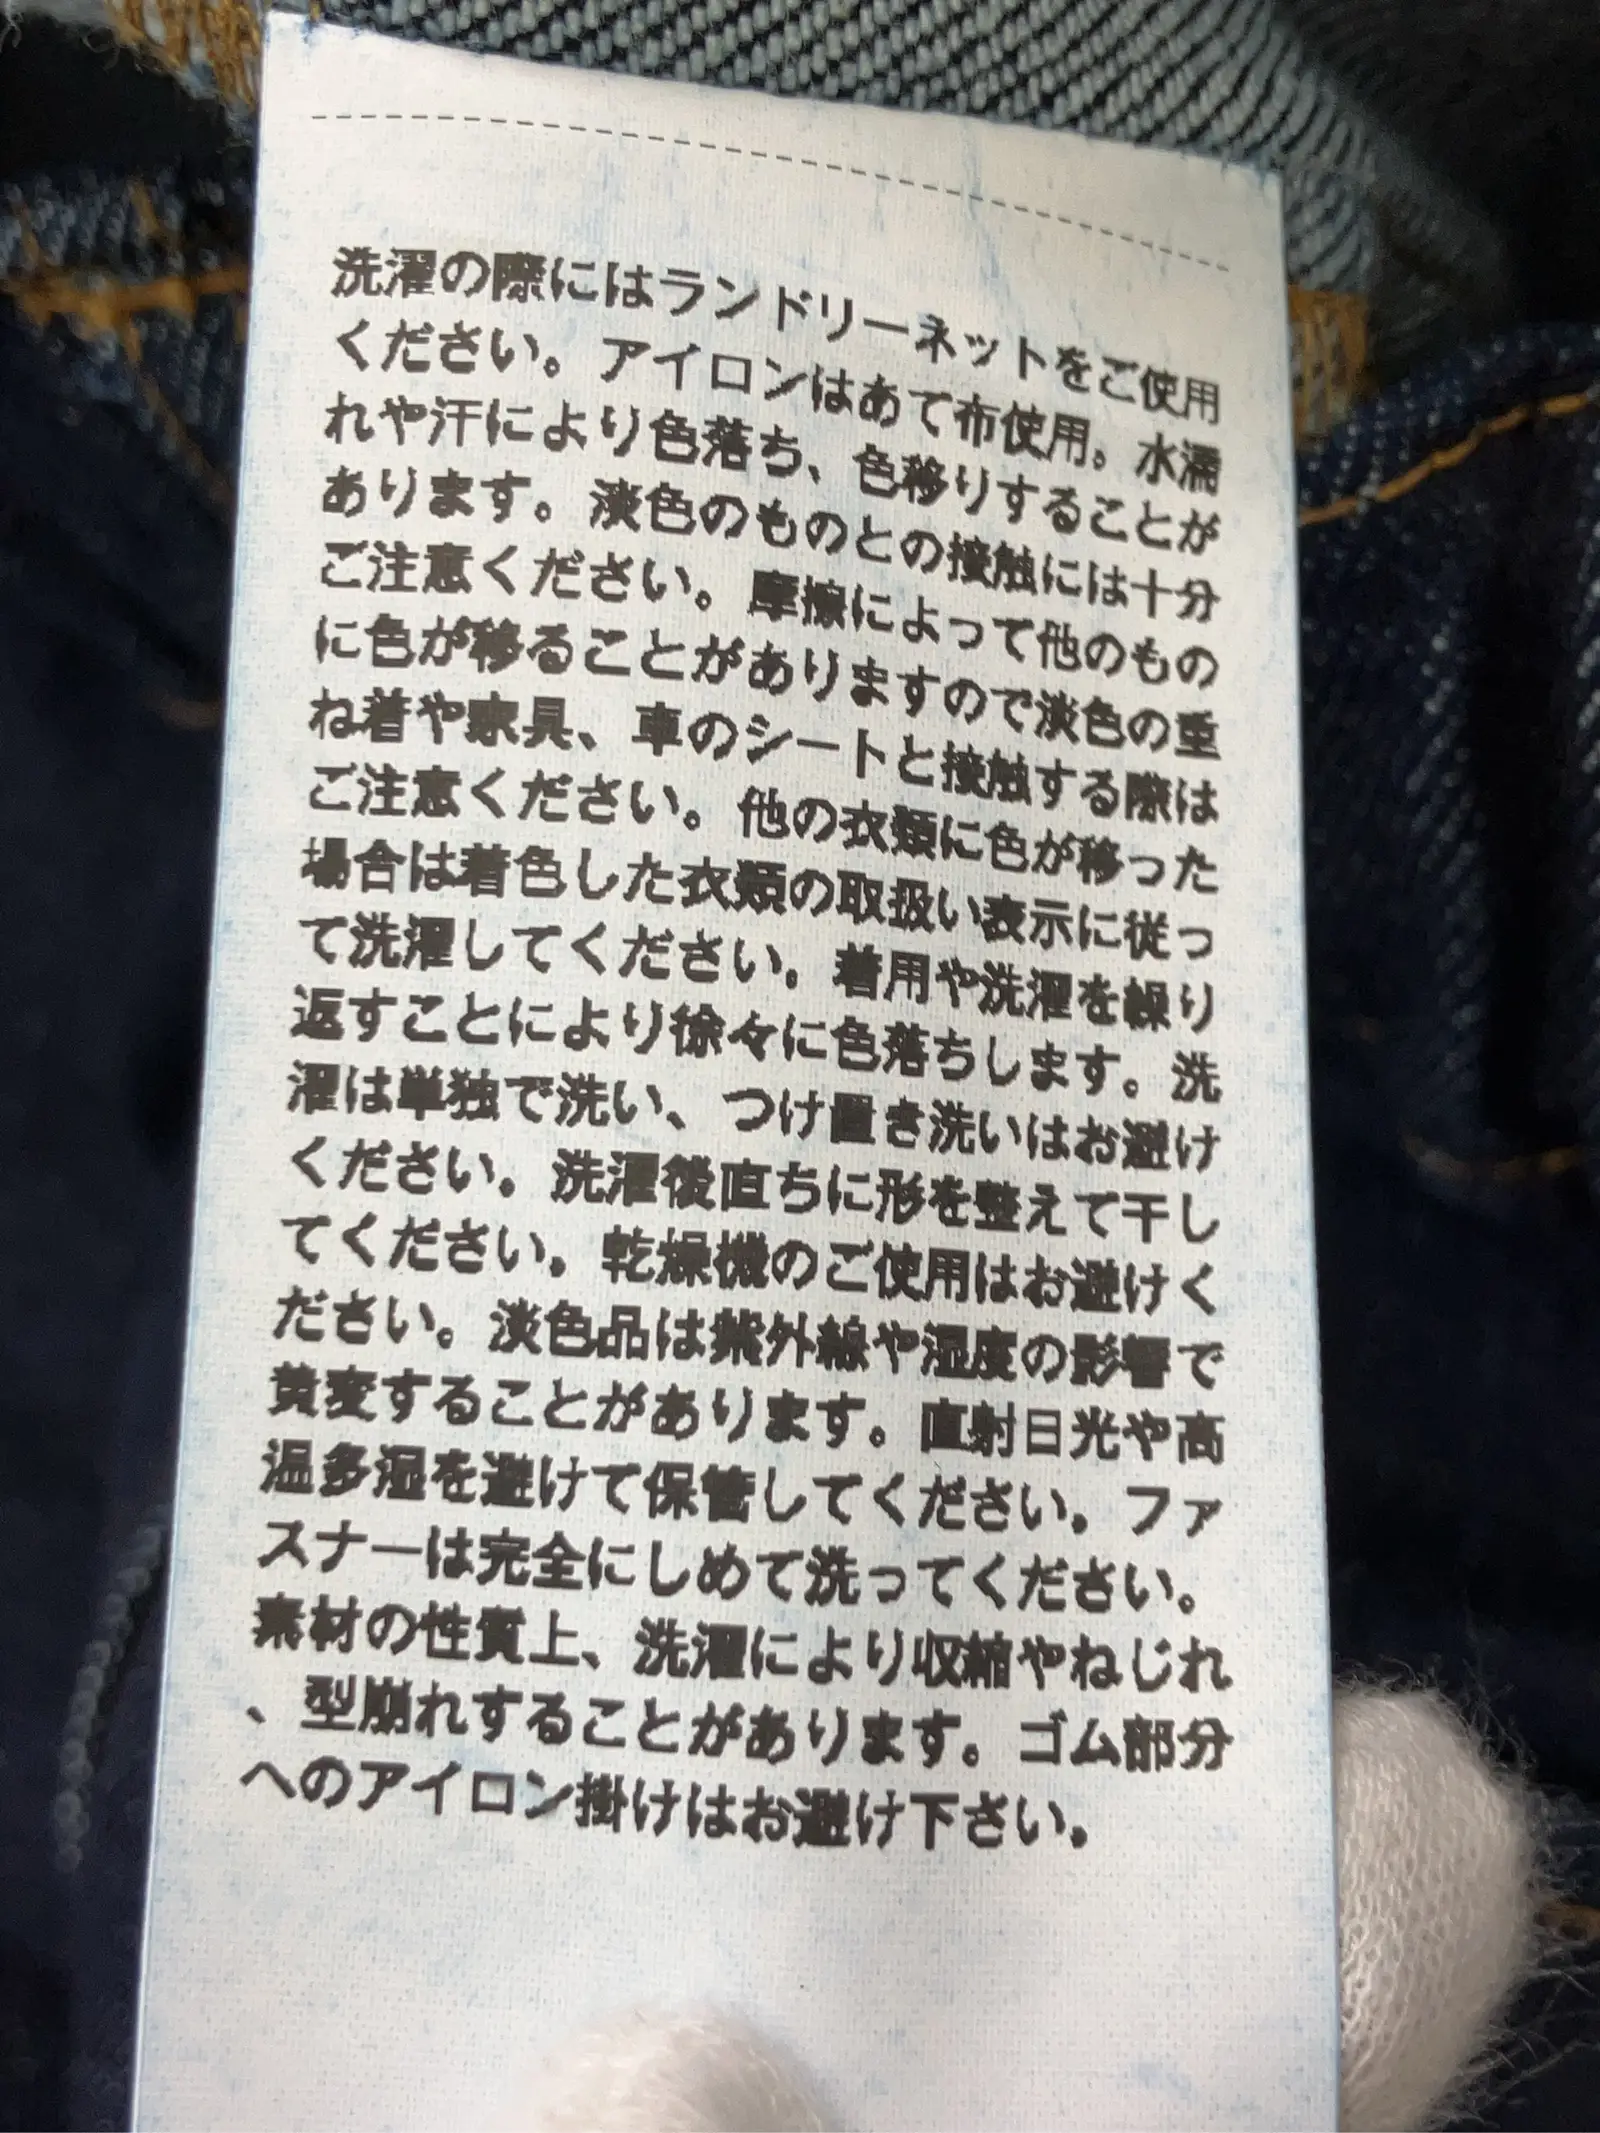 洗濯の際にはランドリーネットをご使用
ください。アイロンはあて布使用。水濡
れや汗により色落ち、色移りすることが
あります。淡色のものとの接触には十分
ご注意ください。摩擦によって他のもの
に色が移ることがありますので淡色の重
ね着や家具、車のシートと接触する際は
ご注意ください。他の衣類に色が移った
場合は着色した衣類の取扱い表示に従っ
て洗濯してください。着用や洗濯を繰り
返すことにより徐々に色落ちします。洗
濯は単独で洗い、つけ置き洗いはお避け
ください。洗濯後直ちに形を整えて干し
てください。乾燥機のご使用はお避けく
ださい。淡色品は紫外線や湿度の影響で
黄変することがあります。直射日光や高
温多湿を避けて保管してください。ファ
スナーは完全にしめて洗ってください。
素材の性質上、洗濯により収縮やねじれ
、型崩れすることがあります。ゴム部分
へのアイロン掛けはお避け下さい。